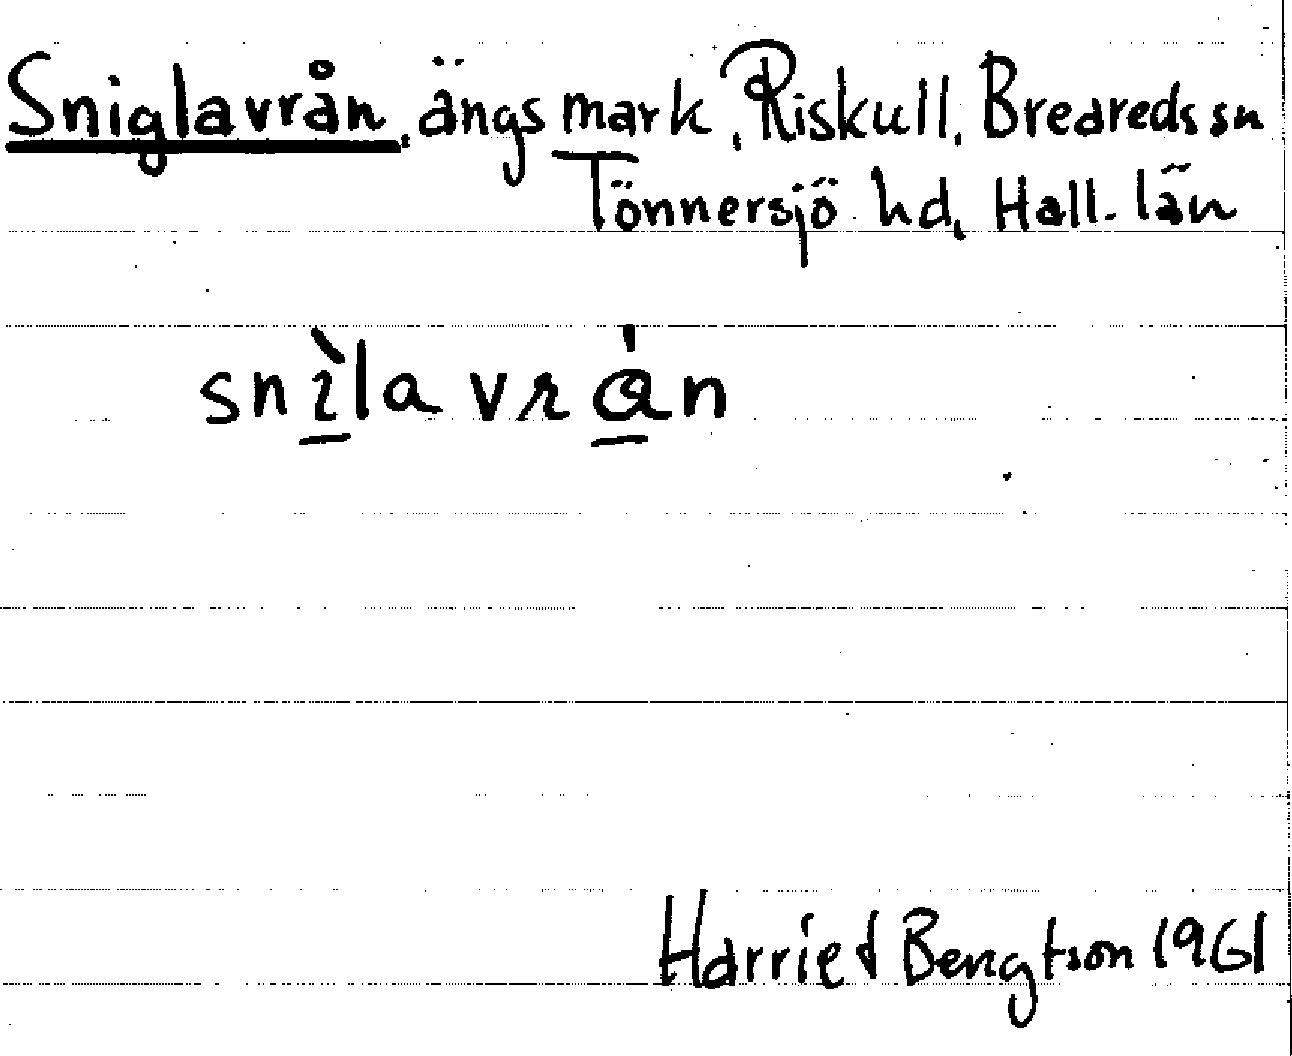 Sniglavrån, ängsmark, Riskull, Breareds sn
Tönnersjö hd, Hall. län
snìla vrån
Harriet Bengtson 1961